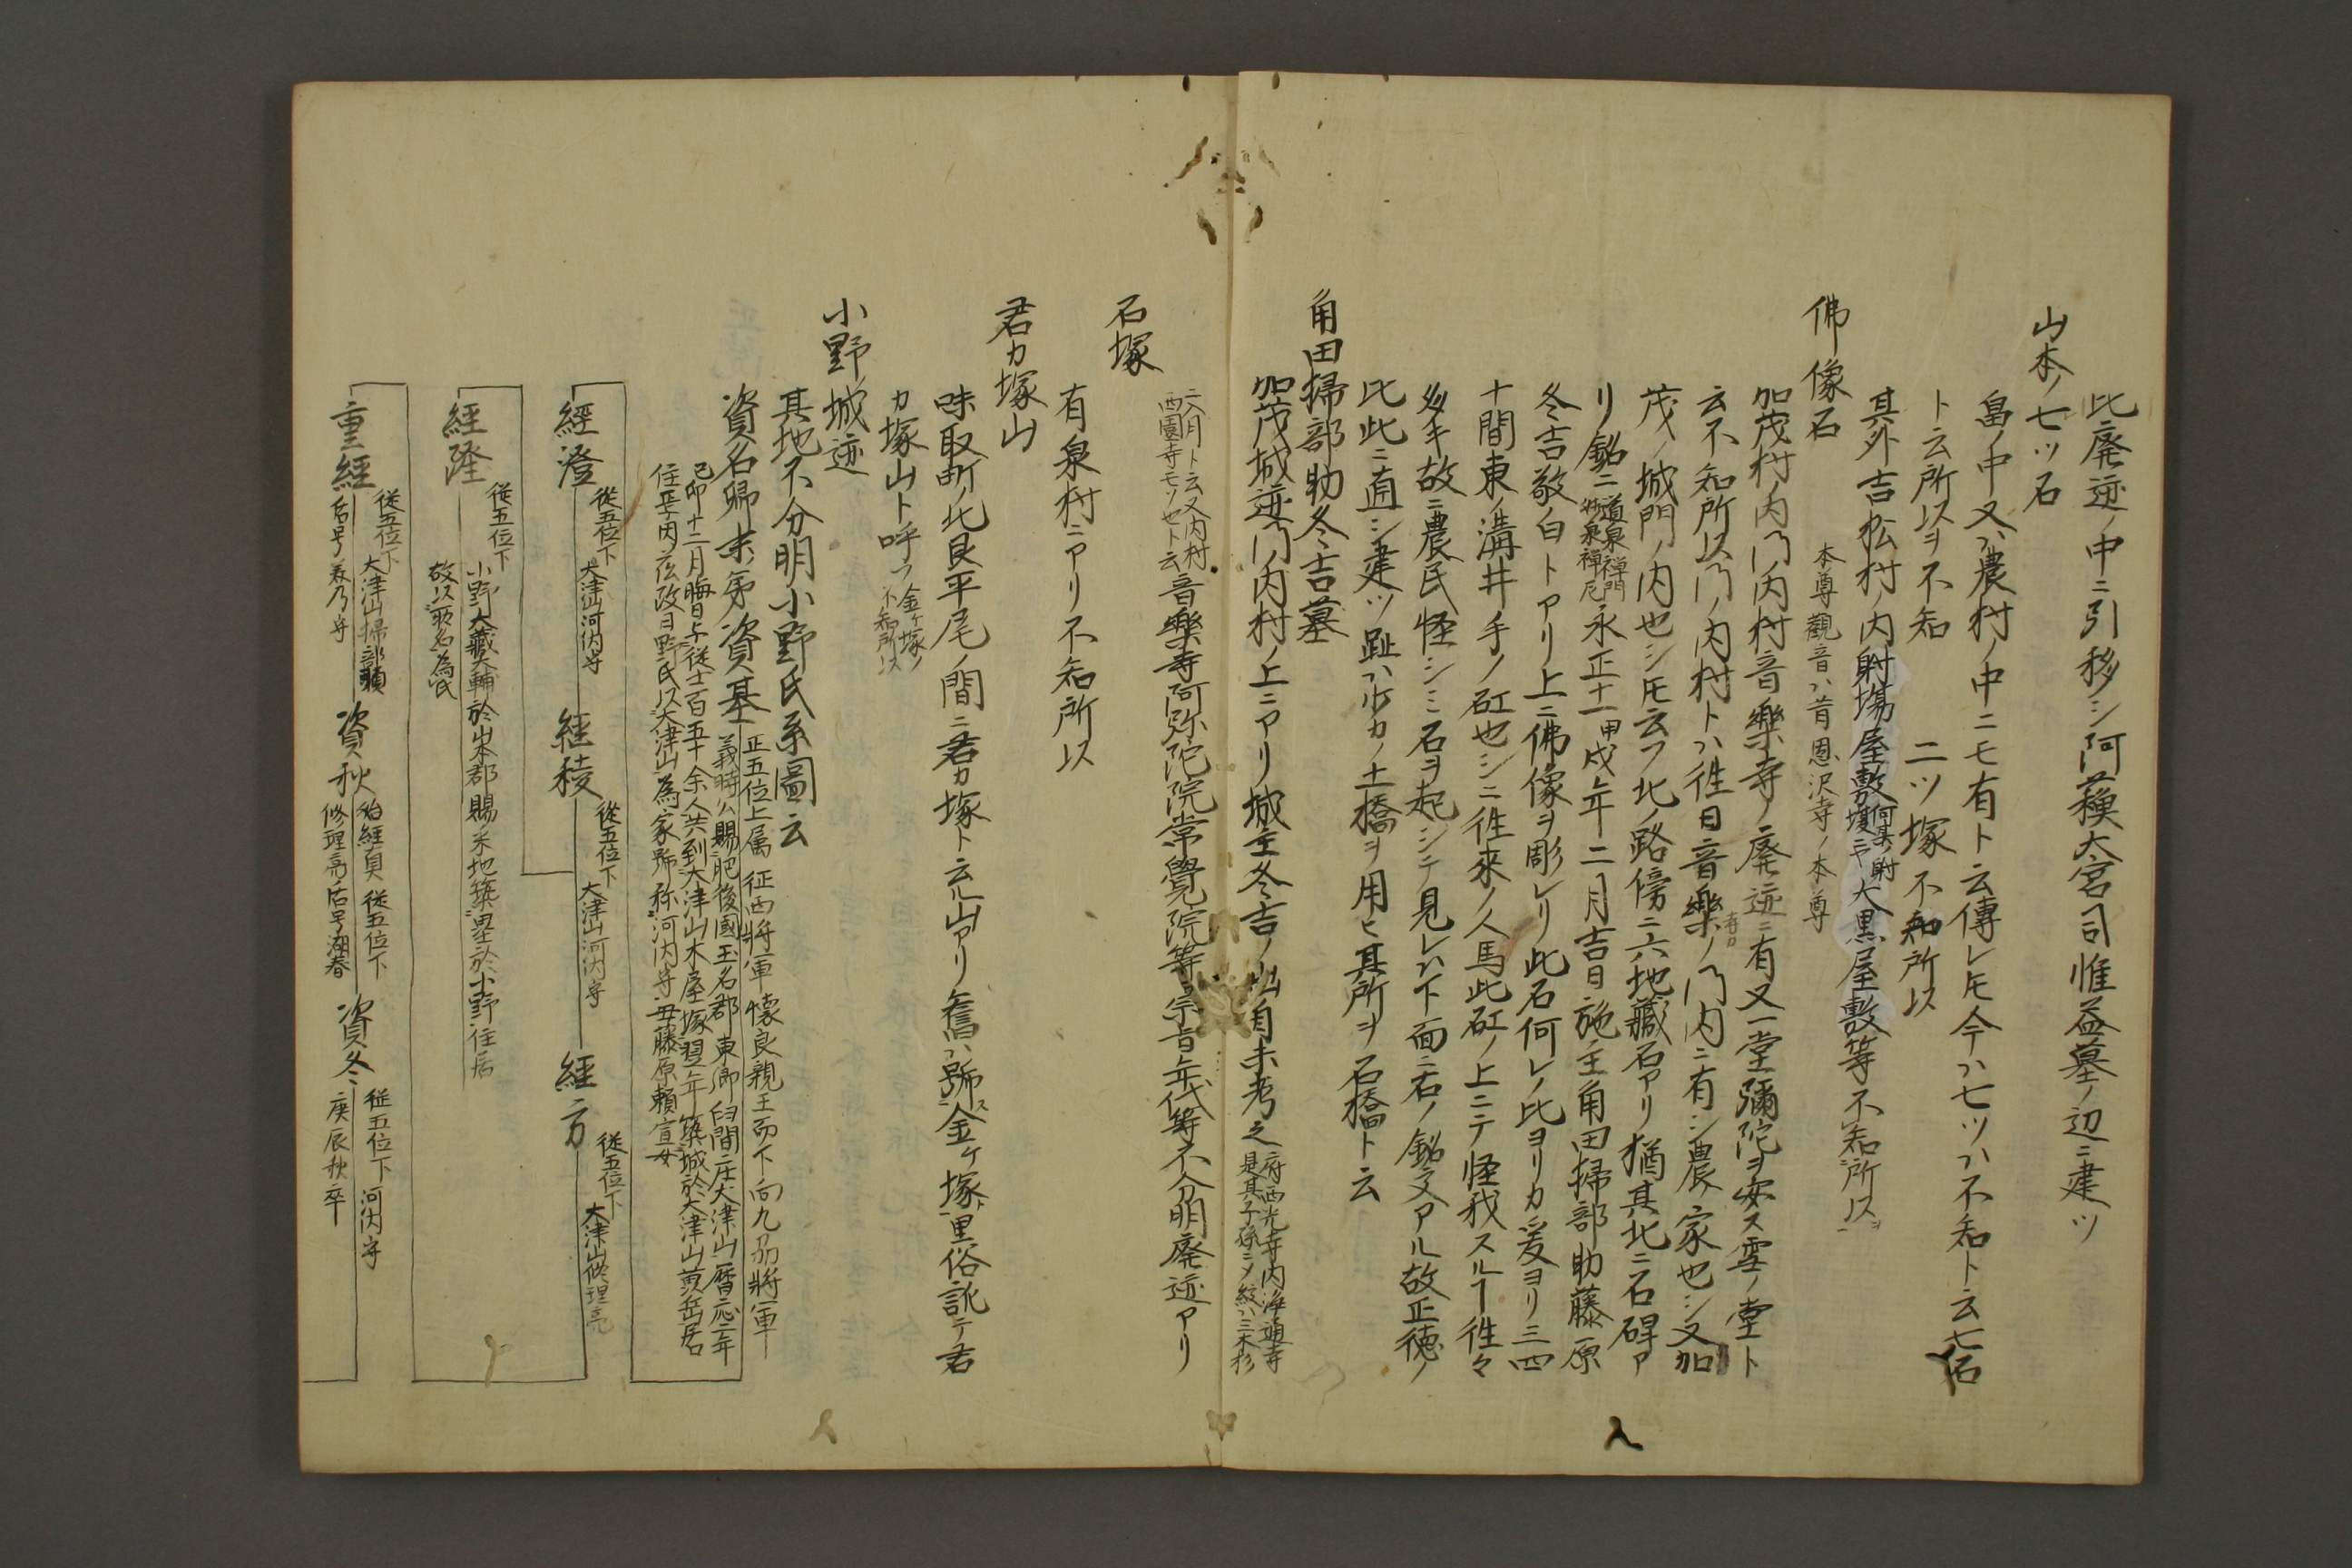 比廃迹ノ中ニ引移シ阿蘓大宮司惟益墓ノ辺ニ建ツ
山本ノ七ツ石
畠ノ中又ハ農村ノ中ニモ有ト云傳レ𪜈今ハ七ツハ不知ト云七石
ト云所以ヲ不知　二ツ塚不知所以
其外吉松村ノ内射塲屋敷何某ノ射塲ニヤ大黒屋敷等不知所以ヲ
佛像石　本尊觀音ハ昔恩沢寺ノ本尊
加茂村ノ内門内村音樂寺ノ廃迹ニ有又一堂彌陀ヲ安ス雲ノ堂ト
云不知所以門ノ内村トハ徃日音樂ノ門内ニ有シ農家也シ又加
茂ノ城門ノ内也シ𪜈云フ北ノ路傍ニ六地藏石アリ猶其北ニ石碑ア
リ銘ニ道泉禅門妙泉禅尼永正十一甲戌年二月吉日施主角田掃部助藤原
冬吉敬白トアリ上ニ佛像ヲ彫レリ此石何レノ比ヨリカ爰ヨリ三四
十間東ノ溝井手ノ矼也シニ徃來ノ人馬此矼ノ上ニテ怪我スルヿ徃々
多キ故ニ農民怪シミ石ヲ起シテ見レハ下面ニ右ノ銘文アル故正徳ノ
比此ニ直シ建ツ趾ハホカノ土橋ヲ用ヒ其所ヲ石橋ト云
角田掃部助冬吉墓
加茂城迹門内村ノ上ニアリ城主冬吉ノ出自未考之府西光寺内浄通寺是其子孫ニメ紋ハ三本杉
二入月ト云又内村西園寺モソノセト云音樂寺阿弥陀院常覺院等ノ宗旨年代等不分明廃迹アリ
石塚
有泉村ニアリ不知所以
君カ塚山
味取町ノ北良平尾ノ間ニ君カ塚ト云ル山アリ舊ハ號ス金ケ塚ト里俗訛テ君
カ塚山ト呼フ金ケ塚ノ不知所以
小野城迹
其地不分明小野氏系圖云
資名卿末弟資基
正五位上属征西將軍懐良親王而下向九刕將軍
義時公賜肥後國玉名郡東郷臼間ニ庄大津山暦応二年
己卯十二月晦日与従士百五十余人共到大津山木屋塚翌年築城於大津山萴岳居
住焉内ノ茲改日野氏以大津山為家號称河内守母藤原頼宣女
經澄　従五位下　大津山河内守
経稜　従五位下　大津山河内守
經方　従五位下　大津山修理亮
経隆　従五位下
小野大藏大輔於山本郡賜釆地築塁於小野住居
故以敢名為氏
重經　従五位下　大津山掃部頭　后号美乃守
資秋　始經貞　従五位下　修理亮后号湖春
資冬　従五位下　河内守　庚辰秋卒